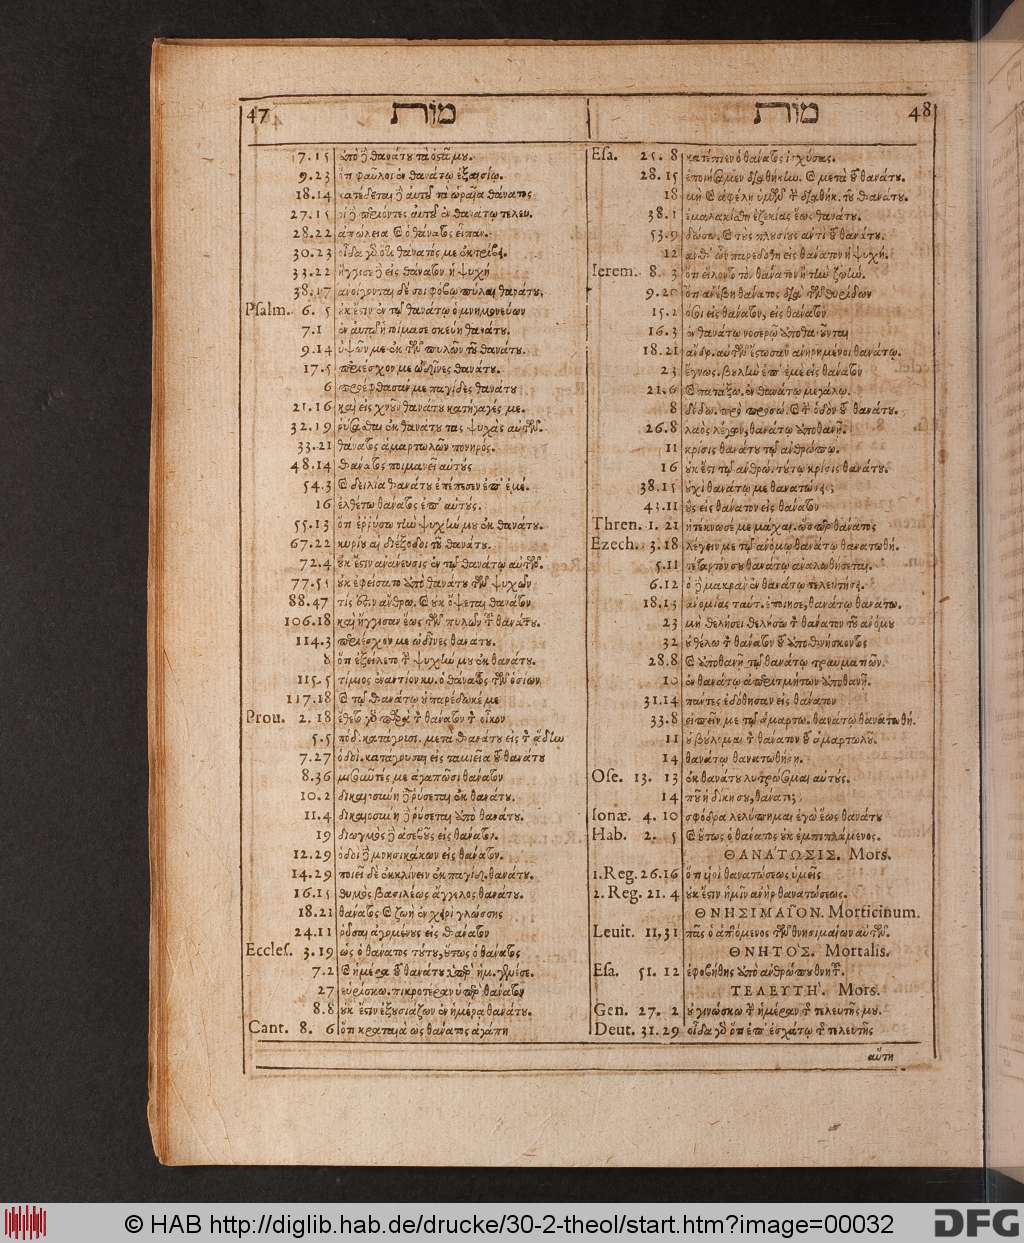 47 מות
7.15 ὑπὸ ἢ θανάτου τὰ ὀστᾶ μου.
9.23 ὅτι φαῦλοι ἐν θανάτῳ ἐξαισίῳ.
18.14
27.15
28.22 ἀπώλεια καὶ ὁ θάνατος εἶπαν.
30.23 οἶδα γὰρ ὅτι θάνατός με ἐκτρίψει.
33.22 ἤγγισε δὲ εἰς θάνατον ἡ ψυχὴ
38.17 ἀνοίγονται δέ σοι φόβῳ πύλαι θανάτου,
Psalm. 6. 5 οὐκ ἔστιν ἐν τῷ θανάτῳ ὁ μνημονεύων
7.1 ἐν αὐτῷ ἡτοίμασε σκεύη θανάτου.
9.14 ὑψῶν με ἐκ τῶν πυλῶν τοῦ θανάτου.
17.5 περιέσχον με ὠδῖνες θανάτου.
6 προέφθασάν με παγίδες θανάτου
21.16 καὶ εἰς χοῦν θανάτου κατήγαγές με.
32.19 ῥύσασθαι ἐκ θανάτου τὰς ψυχὰς αὐτῶν.
33.21 θάνατος ἁμαρτωλῶν πονηρός.
48.14 θάνατος ποιμανεῖ αὐτούς
54.3 καὶ δειλία θανάτου ἐπέπεσεν ἐπ' ἐμέ.
16 ἐλθέτω θάνατος ἐπ' αὐτούς.
55.13 ὅτι ἐῤῥύσω τὴν ψυχήν μου ἐκ θανάτου.
67.22 κυρίου αἱ διέξοδοι τοῦ θανάτου.
72.4 οὐκ ἔστιν ἀνάνευσις ἐν τῷ θανάτῳ αὐτῶν.
77.55 οὐκ ἐφείσατο ἀπὸ θανάτου τῶν ψυχῶν
88.47 τίς ἐστιν ἄνθρω. καὶ οὐκ ὄψεται θάνατον
106.18 καὶ ἤγγισαν ἕως τῶν πυλῶν τοῦ θανάτου.
114.3 περιέσχον με ὠδῖνες θανάτου.
8 ὅτι ἐξείλετο τὴν ψυχήν μου ἐκ θανάτου.
115.5 τίμιος ἐναντίον κυ. ὁ θάνατος τῶν ὁσίων
117.18 καὶ τῷ θανάτῳ οὐ παρέδωκέ με
Prou. 2. 18 ἔθετο γὰρ παρὰ τῷ θανάτῳ τὸν οἶκον
5.5
7.27 ὁδοὶ. κατάγουσαι εἰς ταμιεῖα τοῦ θανάτου
8.36 μισοῦντές με ἀγαπῶσι θάνατον
10.2 δικαιοσύνη δὲ ῥύσεται ἐκ θανάτου.
11.4 δικαιοσύνη δὲ ῥύσεται ἀπὸ θανάτου.
19 διωγμὸς δὲ ἀσεβοῦς εἰς θάνατον.
12.29 ὁδοὶ δὲ μνησικάκων εἰς θάνατον.
14.29 ποιεῖ δὲ ἐκκλίνειν ἐκ παγίδ. θανάτου.
16.15 θυμὸς βασιλέως ἄγγελος θανάτου.
18.21 θάνατος καὶ ζωὴ ἐν χειρὶ γλώσσης
24.11 ῥῦσαι ἀγομένους εἰς θάνατον
Eccles. 3.19 ὡς ὁ θάνατος τούτου, οὕτως ὁ θάνατος
7.2 καὶ ἡμέρα τοῦ θανάτου ὑπὲρ ἡμ. γενέσε.
27 εὑρίσκω. πικροτέραν ὑπὲρ θάνατον
8.8 οὐκ ἔστιν ἐξουσιάζων ἐν ἡμέρᾳ θανάτου.
Cant. 8. 6 ὅτι κραταιὰ ὡς θάνατος ἀγάπη
מות 48
Esa. 25. 8 κατέπιεν ὁ θάνατος ἰσχύσας.
28.15 ἐποιήσαμεν διαθήκην. καὶ μετὰ τοῦ θανάτου.
18 μὴ καὶ ἀφέλῃ ὑμῶν τὴν διαθήκ. τοῦ θανάτου.
38.1 ἐμαλακίσθη ἐζεκίας ἕως θανάτου.
53.9 δώσω. καὶ τοὺς πλουσίους ἀντὶ τοῦ θανάτου.
12 ἀνθ' ὧν παρεδόθη εἰς θάνατον ἡ ψυχή.
Ierem. 8. 3 ὅτι εἵλοντο τὸν θάνατον ἢ τὴν ζωήν.
9.20 ὅτι ἀνέβη θάνατος διὰ τῶν θυρίδων
15.2 ὅσοι εἰς θάνατον, εἰς θάνατον
16.3 ἐν θανάτῳ νοσερῷ ἀποθανοῦνται
18.21 ἄνδρ. αὐτῶν ἔστωσαν ἀνῃρημένοι θανάτῳ.
23 ἔγνως. βουλὴν ἐπ' ἐμὲ εἰς θάνατον
21.6 καὶ πατάξω. ἐν θανάτῳ μεγάλῳ.
8 δέδω. πρὸ προσώ. καὶ τὴν ὁδὸν τοῦ θανάτου.
26.8 λαὸς λέγων, θανάτῳ ἀποθανῇ.
11 κρίσις θανάτου τῷ ἀνθρώπῳ.
16 οὐκ ἔστι τῷ ἀνθρώ. τούτῳ κρίσις θανάτου.
38.15 οὐχὶ θανάτῳ με θανατώσεις;
43.11 οὓς εἰς θάνατον εἰς θάνατον
Thren. 1. 21 ἠτέκνωσέ με μάχαι. ὥσπερ θάνατος
Ezech. 3.18 λέγειν με τῷ ἀνόμῳ θανάτῳ θανατωθή.
5.11 τέταρτόν σου θανάτῳ ἀναλωθήσεται.
6.12 ὁ δὲ μακρὰν ἐν θανάτῳ τελευτήσῃ.
18.13 ἀνομίας ταύτ. ἐποίησε, θανάτῳ θανάτω.
23 μὴ θελήσει θελήσω τὸν θάνατον τοῦ ἀνόμου
32 οὐ θέλω τὸν θάνατον τοῦ ἀποθνήσκοντος
28.8 καὶ ἀποθανῇ τῷ θανάτῳ τραυματιῶν.
10 ἐν θανάτῳ ἀπεριτμήτων ἀποθανῇ.
31.14 πάντες ἐδόθησαν εἰς θάνατον
33.8 εἰπεῖν με τῷ ἁμαρτω. θανάτῳ θανατωθή.
11 οὐ βούλομαι τὸν θάνατον τοῦ ἁμαρτωλοῦ.
14 θανάτῳ θανατωθήσῃ.
Ose. 13. 13 ἐκ θανάτου λυτρώσομαι αὐτούς.
14 ποῦ ἡ δίκη σου, θάνατε;
Ionæ. 4. 10 σφόδρα λελύπημαι ἐγὼ ἕως θανάτου
Hab. 2. 5 καὶ οὗτος ὁ θάνατος οὐκ ἐμπιπλάμενος.
ΘΑΝΑΤΩΣΙΣ. Mors.
1.Reg.26.16 ὅτι υἱοὶ θανατώσεως ὑμεῖς
2. Reg. 21. 4 οὐκ ἔστιν ἡμῖν ἀνὴρ θανατώσεως.
ΘΝΗΣΙΜΑῖΟΝ. Morticinum.
Leuit. 11,31 πᾶς ὁ ἁπτόμενος τῶν θνησιμαίων αὐτῶν.
ΘΝΗΤΟΣ. Mortalis.
Esa. 51. 12 ἐφοβήθης ἀπὸ ἀνθρώπου θνητοῦ.
ΤΕΛΕΥΤΗ. Mors.
Gen. 27. 2 οὐ γινώσκω τὴν ἡμέραν τῆς τελευτῆς μου.
Deut. 31. 29 οἶδα γὰρ ὅτι ἐπ' ἐσχάτῳ τῆς τελευτῆς
αὕτη
© HAB http://diglib.hab.de/drucke/30-2-theol/start.htm?image=00032
DFG